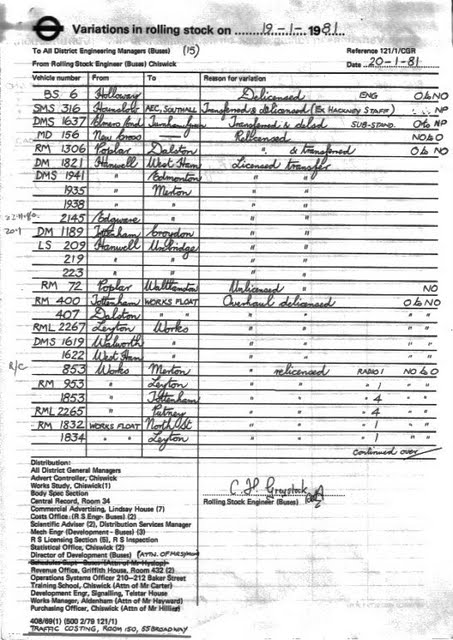 Variations in rolling stock on 19-1-1981
(15)
To All District Engineering Managers (Buses) Reference 121/1/CGR
From Rolling Stock Engineer (Buses) Chiswick Date 20-1-81
Vehicle number From To Reason for variation
BS 6 Holloway Delicensed ENG O to NO
SMS 316 Hounslow AEC, SOUTHALL Transferred & delicensed (Ex HACKNEY STAFF) " NP
DMS 1637 Elmers End Turnham Grn Transferred & delsd SUB-STAND. O to NP
MD 156 New Cross Relicensed NO to O
RM 1306 Poplar Dalston " & transferred O to NO
DM 1821 Hanwell West Ham Licensed transfer
DMS 1941 " Edmonton "
1935 " Merton "
1938 " " "
2145 Edgware " "
20-1 DM 1189 Tottenham Croydon " "
LS 209 Hanwell Uxbridge " "
219 " " " "
223 " " " "
RM 72 Poplar Walthamstow Unlicensed NO
RM 400 Tottenham WORKS FLOAT Overhaul delicensed O to NO
407 Dalston " " " " " "
RML 2267 Leyton Works " " " "
DMS 1619 Walworth " " " " "
1622 West Ham " " " " "
R/C 853 Works Merton " relicensed RADIO 1 NO to O
RM 953 " Leyton " " " 1 " "
1853 " Tottenham " " " 4 " "
RML 2265 " Putney " " " 4 " "
RM 1832 WORKS FLOAT North St " " " 1 " "
1834 " " Leyton " " " 1 " "
continued over
Distribution:
All District General Managers
Advert Controller, Chiswick
Works Study, Chiswick(1)
Body Spec Section
Central Record, Room 34
Commercial Advertising, Lindsay House (7)
Costs Office: (R S Engr- Buses) (2)
Scientific Adviser (2), Distribution Services Manager
Mech Engr (Development - Buses) (3)
R S Licensing Section (5), R S Inspection
Statistical Office, Chiswick (2)
Director of Development (Buses) (ATTN. OF MRS
Schedules Supt - Buses (Attn of Mr Hyslop)
Revenue Office, Griffith House, Room 432 (2)
Operations Systems Officer 210-212 Baker Street
Training School, Chiswick (Attn of Mr Carter)
Development Engr, Signalling, Telstar House
Works Manager, Aldenham (Attn of Mr Hayward)
Purchasing Officer, Chiswick (Attn of Mr Hillier)
C H Greystock
Rolling Stock Engineer (Buses)
408/69(1) (500 2/79 121/1)
TRAFFIC COSTING, ROOM 150, 55 BROADWAY